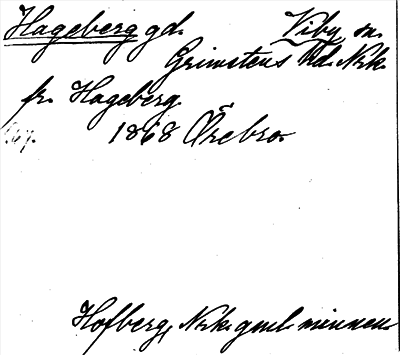 Hageberg gd. Viby sn.
Grimstens hd. Nrk.
fr. Hageberg
1868 Örebro.
Hofberg, Nrk. gml. minnen.